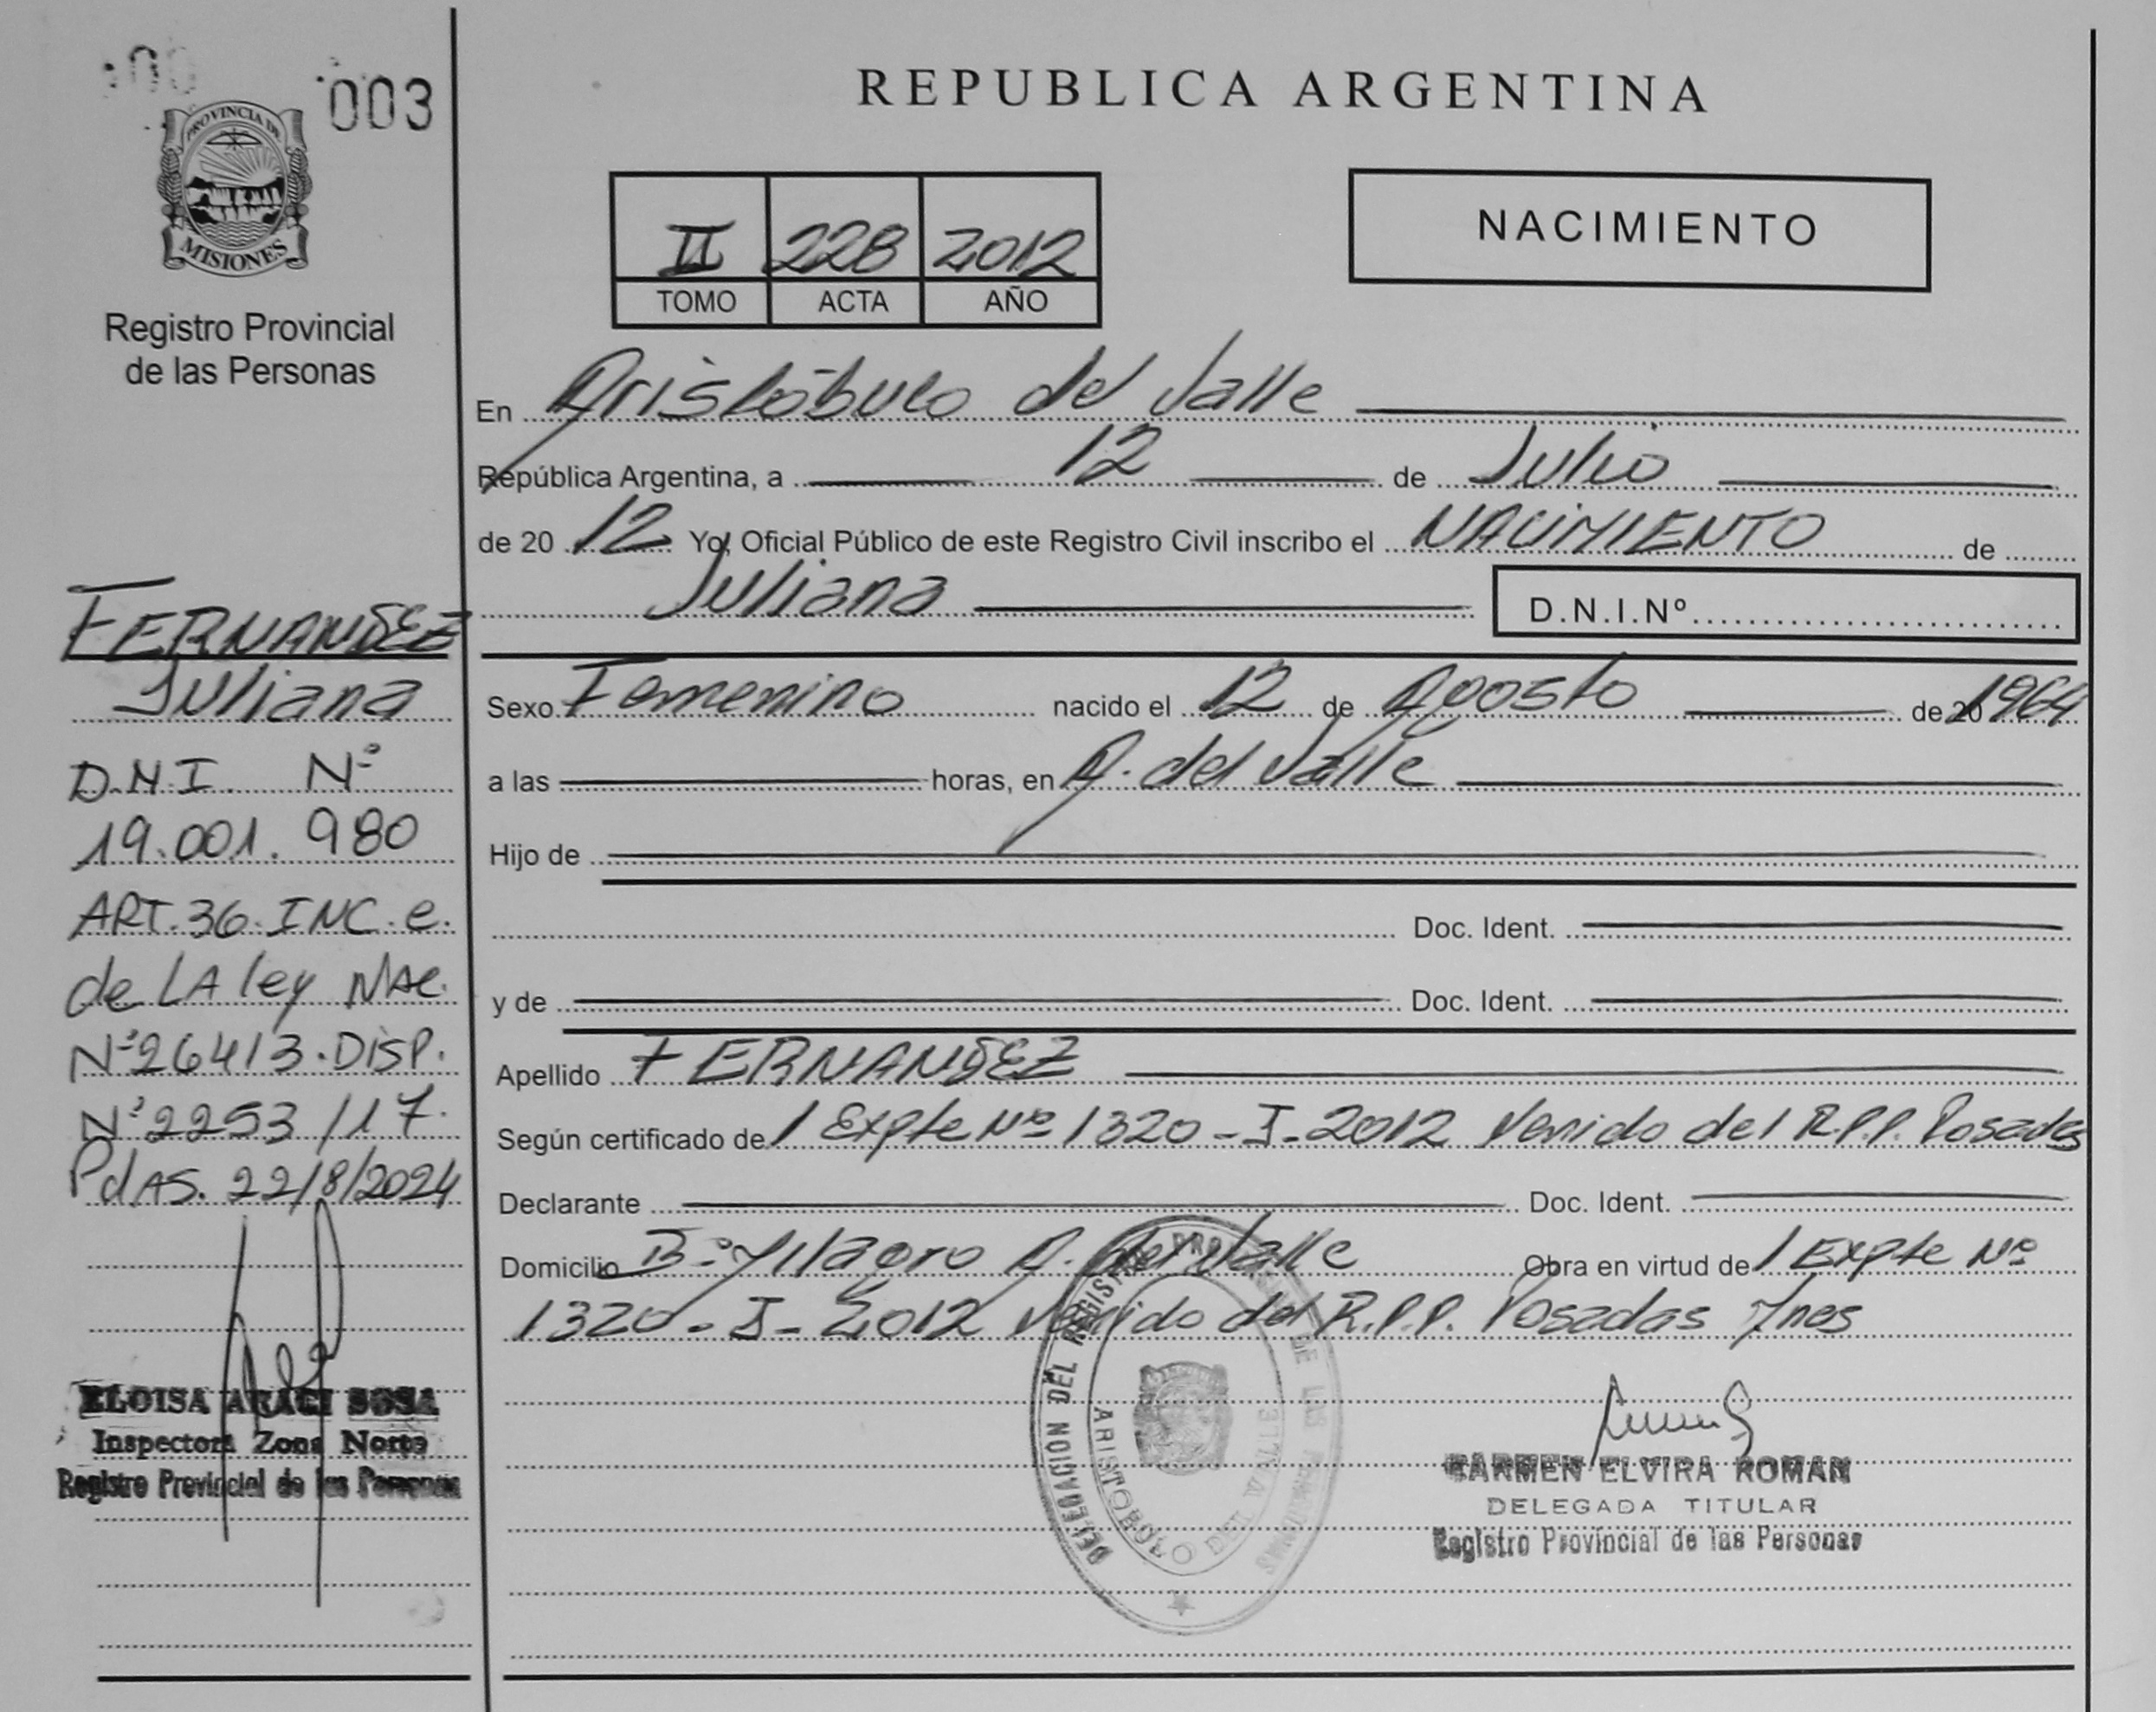 003
PROVINCIA DE
MISIONES
Registro Provincial
de las Personas
FERNANDEZ
Juliana
D.N.I. Nº
19.001.980
ART.36.INC.e.
de LA ley NAC.
Nº26413.DISP.
Nº2253/17.
PdAS. 22/8/2024
ELOISA ARACI SOSA
Inspectora Zona Norte
Registro Provincial de las Personas
REPUBLICA ARGENTINA
II 228 2012
TOMO ACTA AÑO
NACIMIENTO
En Aristóbulo del Valle
República Argentina, a 12 de Julio
de 20 12 Yo, Oficial Público de este Registro Civil inscribo el NACIMIENTO de
Juliana D.N.I.Nº
Sexo Femenino nacido el 12 de Agosto de 20 1964
a las horas, en A. del Valle
Hijo de
Doc. Ident.
y de Doc. Ident.
Apellido FERNANDEZ
Según certificado de / Expte Nº 1320-I-2012 Venido del R.P.P. Posadas
Declarante Doc. Ident.
Domicilio Bº Milagro A. del Valle Obra en virtud de / Expte Nº
1320-I-2012 Venido del R.P.P. Posadas Mnes
DELEGACION DEL REGISTRO PROVINCIAL DE LAS PERSONAS
ARISTOBULO DEL VALLE
CARMEN ELVIRA ROMAN
DELEGADA TITULAR
Registro Provincial de las Personas